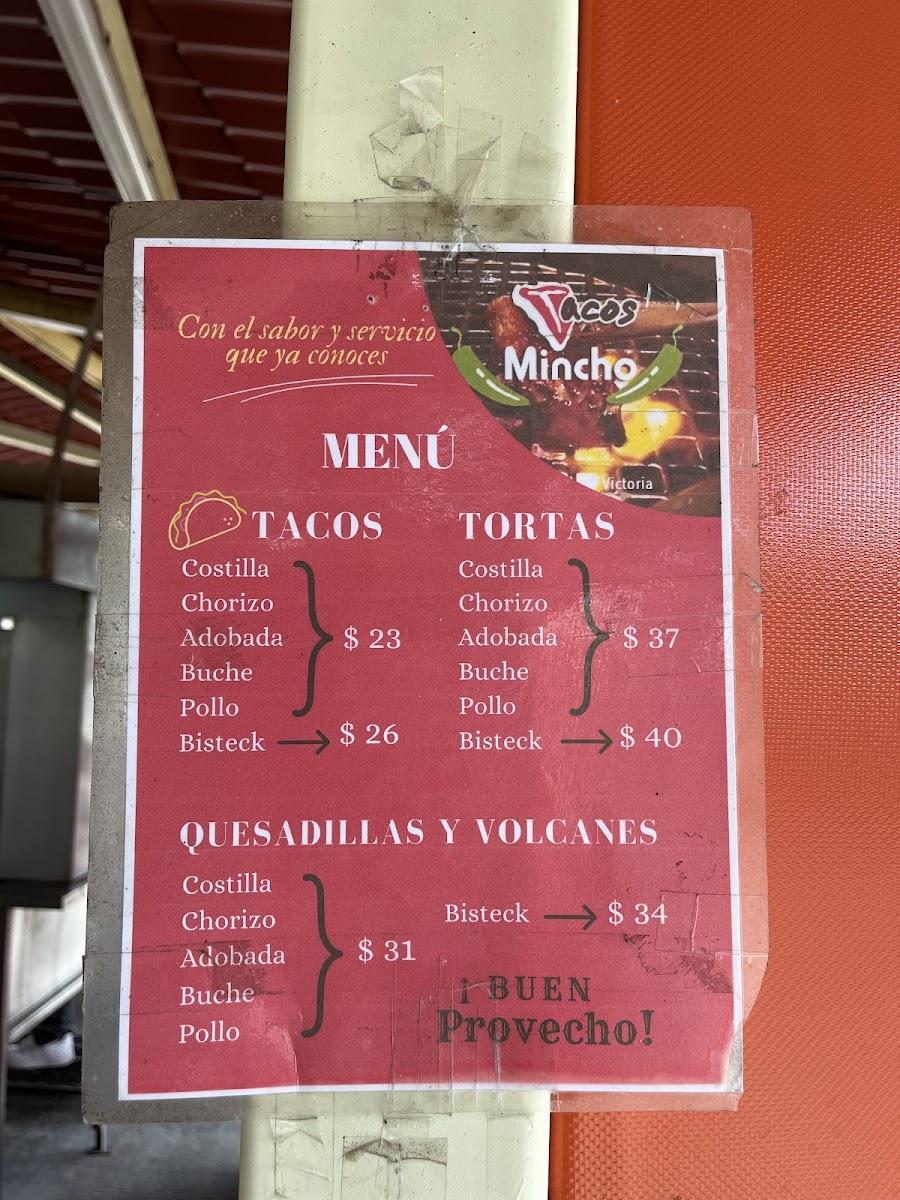 Con el sabor y servicio
que ya conoces
Tacos
Mincho
Victoria
MENÚ
TACOS
Costilla
Chorizo
Adobada
Buche
Pollo
$ 23
Bisteck → $ 26
TORTAS
Costilla
Chorizo
Adobada
Buche
Pollo
$ 37
Bisteck → $ 40
QUESADILLAS Y VOLCANES
Costilla
Chorizo
Adobada
Buche
Pollo
$ 31
Bisteck → $ 34
¡ BUEN
Provecho!